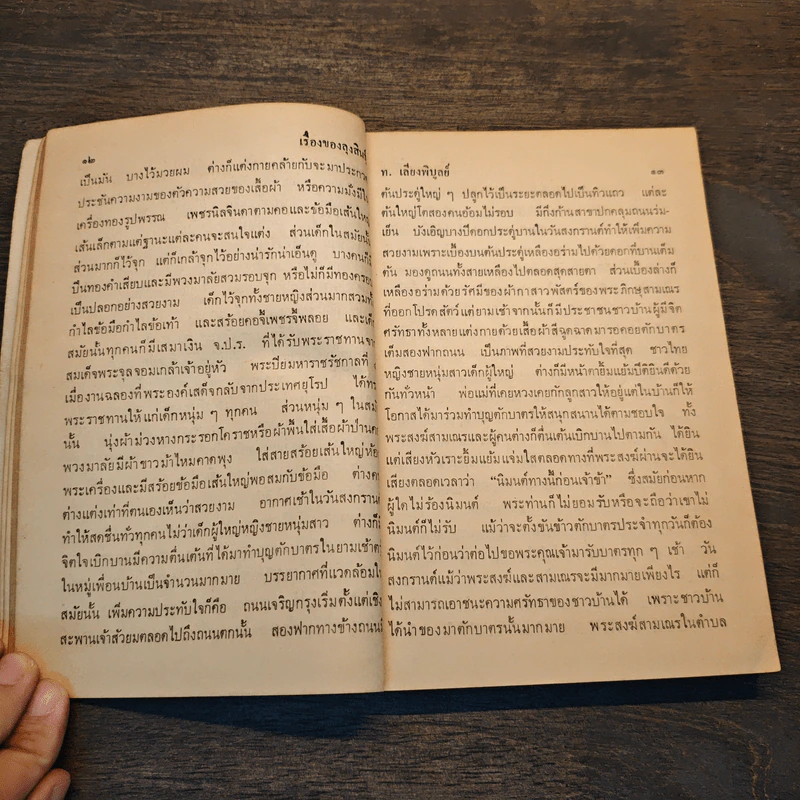 ๑๒
เรื่องของลุงสินธุ์
เป็นมัน บางไว้มวยผม ต่างก็แต่งกายคล้ายกับจะมาประกวด
ประชันความงามของตัวความสวยของเสื้อผ้า หรือความมั่งมี
เครื่องทองรูปพรรณ เพชรนิลจินดาตามคอและข้อมือเส้นใหญ่
เส้นเล็กตามแต่ฐานะแต่ละคนจะสนใจแต่ง ส่วนเด็กในสมัยนั้น
ส่วนมากก็ไว้จุก แต่ก็เกล้าจุกไว้อย่างน่ารักน่าเอ็นดู บางคนก็
ปิ่นทองคำเสียบและมีพวงมาลัยสวมรอบจุก หรือไม่ก็มีทองครอบ
เป็นปลอกอย่างสวยงาม เด็กไว้จุกทั้งชายหญิงส่วนมากสวมทั้ง
กำไลข้อมือกำไลข้อเท้า และสร้อยคอจี้เพชรจี้พลอย และเด็ก
สมัยนั้นทุกคนก็มีเสมาเงิน จ.ป.ร. ที่ได้รับพระราชทานจาก
สมเด็จพระจุลจอมเกล้าเจ้าอยู่หัว พระปิยมหาราชรัชกาลที่
เมื่องานฉลองที่พระองค์เสด็จกลับจากประเทศยุโรป ได้ทรง
พระราชทานให้แก่เด็กหนุ่ม ๆ ทุกคน ส่วนหนุ่ม ๆ ในสมัย
นั้น นุ่งผ้าม่วงหางกระรอกโคราชหรือผ้าพื้นใส่เสื้อผ้าป่าน
พวงมาลัยมีผ้าขาวม้าไหมคาดพุง ใส่สายสร้อยเส้นใหญ่ห้อย
พระเครื่องและมีสร้อยข้อมือเส้นใหญ่พอสมกับข้อมือ ต่างคน
ต่างแต่งเท่าที่ตนเองเห็นว่าสวยงาม อากาศเช้าในวันสงกรานต์
ทำให้สดชื่นทั่วทุกคนไม่ว่าเด็กผู้ใหญ่หญิงชายหนุ่มสาว ต่างก็มี
จิตใจเบิกบานมีความตื่นเต้นที่ได้มาทำบุญตักบาตรในยามเช้าตรู่
ในหมู่เพื่อนบ้านเป็นจำนวนมากมาย บรรยากาศที่แวดล้อมใน
สมัยนั้น เพิ่มความประทับใจก็คือ ถนนเจริญกรุงเริ่มตั้งแต่เชิง
สะพานเจ้าสัวยมตลอดไปถึงถนนตกนั้น สองฟากทางข้างถนนมี
ท. เลียงพิบูลย์
๑๓
ต้นประดู่ใหญ่ ๆ ปลูกไว้เป็นระยะตลอดไปเป็นทิวแถว แต่ละ
ต้นใหญ่โตสองคนอ้อมไม่รอบ มีกิ่งก้านสาขาปกคลุมถนนร่ม-
เย็น บังเอิญบางปีดอกประดู่บานในวันสงกรานต์ทำให้เพิ่มความ
สวยงามเพราะเบื้องบนต้นประดู่เหลืองอร่ามไปด้วยดอกที่บานเต็ม
ต้น มองดูถนนทั้งสายเหลืองไปตลอดสุดสายตา ส่วนเบื้องล่างก็
เหลืองอร่ามด้วยรัศมีของผ้ากาสาวพัสตร์ของพระภิกษุสามเณร
ที่ออกโปรดสัตว์แต่ยามเช้าจากนั้นก็มีประชาชนชาวบ้านผู้มีจิต
ศรัทธาทั้งหลายแต่งกายด้วยเสื้อผ้าสีฉูดฉาดมารอคอยตักบาตร
เต็มสองฟากถนน เป็นภาพที่สวยงามประทับใจที่สุด ชาวไทย
หญิงชายหนุ่มสาวเด็กผู้ใหญ่ ต่างก็มีหน้าตายิ้มแย้มปีติยินดีด้วย
กันทั่วหน้า พ่อแม่ที่เคยหวงเคยกักลูกสาวให้อยู่แต่ในบ้านก็ให้
โอกาสได้มาร่วมทำบุญตักบาตรให้สนุกสนานได้ตามชอบใจ ทั้ง
พระสงฆ์สามเณรและผู้คนต่างก็ตื่นเต้นเบิกบานไปตามกัน ได้ยิน
แต่เสียงหัวเราะยิ้มแย้มแจ่มใสตลอดทางที่พระสงฆ์ผ่านจะได้ยิน
เสียงตลอดเวลาว่า “นิมนต์ทางนี้ก่อนเจ้าข้า” ซึ่งสมัยก่อนหาก
ผู้ใดไม่ร้องนิมนต์ พระท่านก็ไม่ยอมรับหรือจะถือว่าเขาไม่
นิมนต์ก็ไม่รับ แม้ว่าจะตั้งขันข้าวตักบาตรประจำทุกวันก็ต้อง
นิมนต์ไว้ก่อนว่าต่อไปขอพระคุณเจ้ามารับบาตรทุก ๆ เช้า วัน
สงกรานต์แม้ว่าพระสงฆ์และสามเณรจะมีมากมายเพียงไร แต่ก็
ไม่สามารถเอาชนะความศรัทธาของชาวบ้านได้ เพราะชาวบ้าน
ได้นำของมาตักบาตรนั้นมากมาย พระสงฆ์สามเณรในตำบล